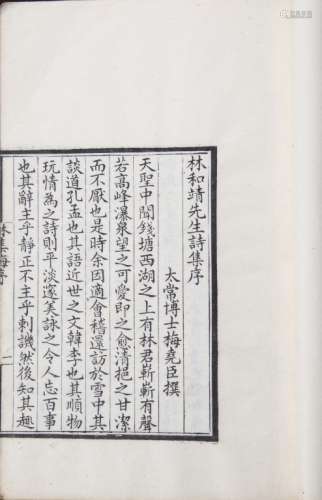 林和靖先生詩集序
太常博士梅堯臣撰
天聖中聞錢塘西湖之上有林君嶄嶄有聲
若高峰瀑泉望之可愛即之愈清挹之甘潔
而不厭也是時余因適會稽還訪於雪中其
談道孔孟也其語近世之文韓李也其順物
玩情為之詩則平淡邃美詠之令人忘百事
也其辭主乎靜正不主乎刺譏然後知其趣
林集梅序
一